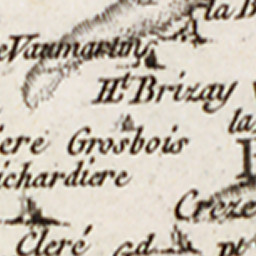 la B
Vaumartin
Ht. Brizay
la
iere Grosbois
ichardiere
Creze
Cleré
Gd.
Pt.